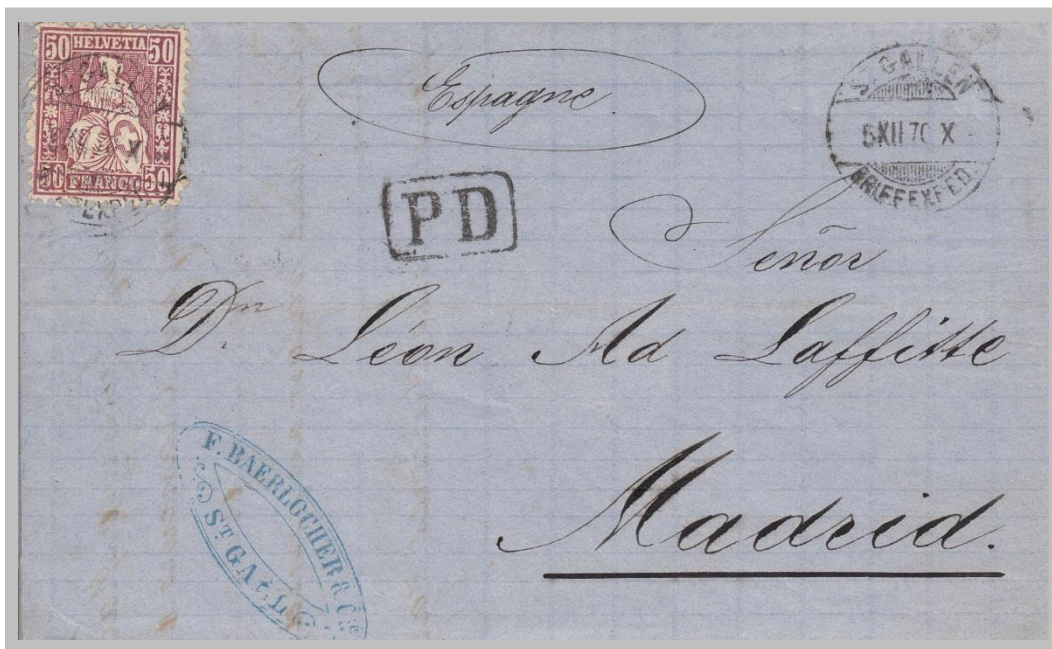 50 HELVETIA 50
50 FRANCO 50
Espagne
ST. GALLEN
5 XII 70 X
BRIEFEXPED.
PD
Señor
Dn León Ad Laffitte
Madrid.
F. BAERLOCHER & Cie
ST GALL